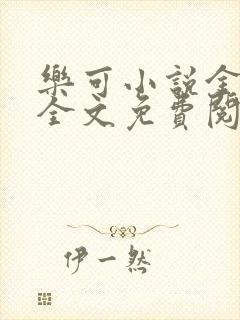 樂可小說全
全文免費閱
伊一然